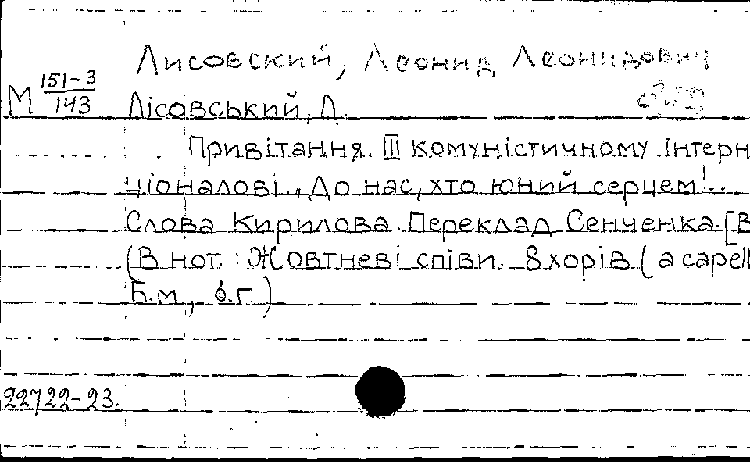 Лисовский, Леонид Леонидович
М 151-3/143
Лісовський, Л.
Привітання III комуністичному Інтерн
ціоналові. "До нас, хто юний серцем!..
Слова Кирилова. Переклад Сенченка. [В
(В нот.: Жовтневі співи. 8 хорів (a capell
Б.м., б.г.)
22722-23.